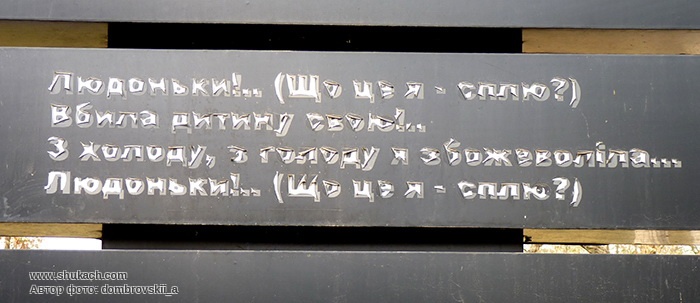 Людоньки!.. (Що це я - сплю?)
Вбила дитину свою!..
З холоду, з голоду я збожеволіла...
Людоньки!.. (Що це я - сплю?)
www.shukach.com
Автор фото: dombrovskii_a